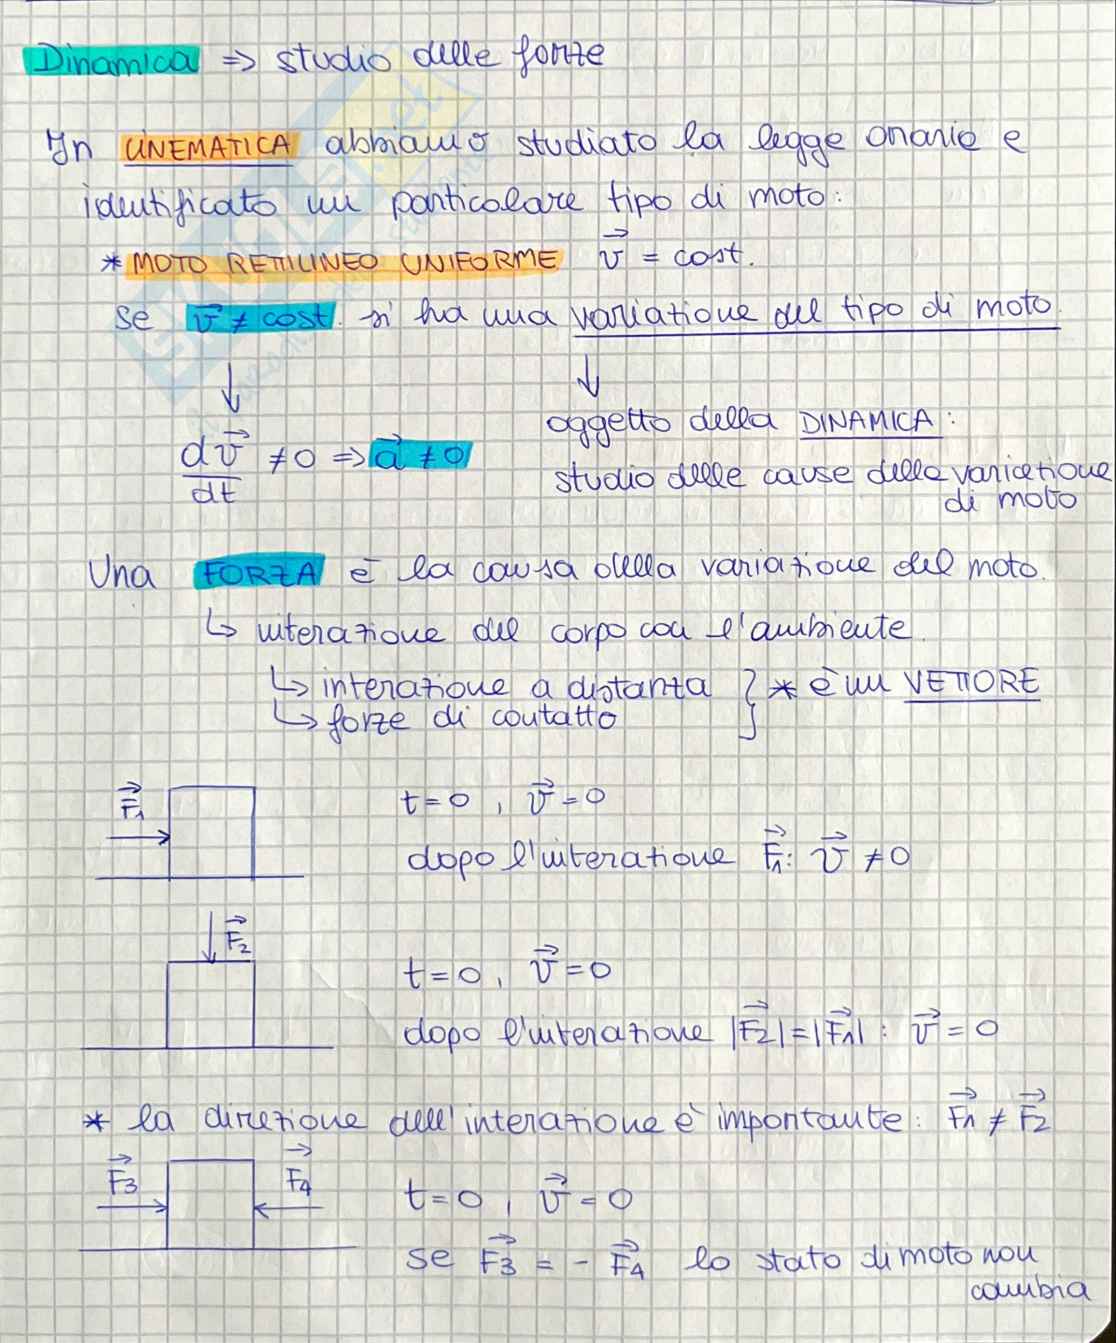 Dinamica => studio delle forze
In CINEMATICA abbiamo studiato la legge oraria e
identificato un particolare tipo di moto:
* MOTO RETTILINEO UNIFORME v⃗ = cost.
se v⃗ ≠ cost. si ha una variazione del tipo di moto.
↓ ↓
dv⃗/dt ≠ 0 => a⃗ ≠ 0
oggetto della DINAMICA:
studio delle cause della variazione
di moto
Una FORZA è la causa della variazione del moto.
↳ interazione del corpo con l'ambiente.
↳ interazione a distanza } * è un VETTORE
↳ forze di contatto
F⃗1
t=0, v⃗=0
dopo l'interazione F⃗1: v⃗ ≠ 0
F⃗2
t=0, v⃗=0
dopo l'interazione |F⃗2|=|F⃗1| : v⃗ = 0
* la direzione dell'interazione è importante: F⃗1 ≠ F⃗2
F⃗3 F⃗4
t=0, v⃗=0
se F⃗3 = - F⃗4 lo stato di moto non
cambia